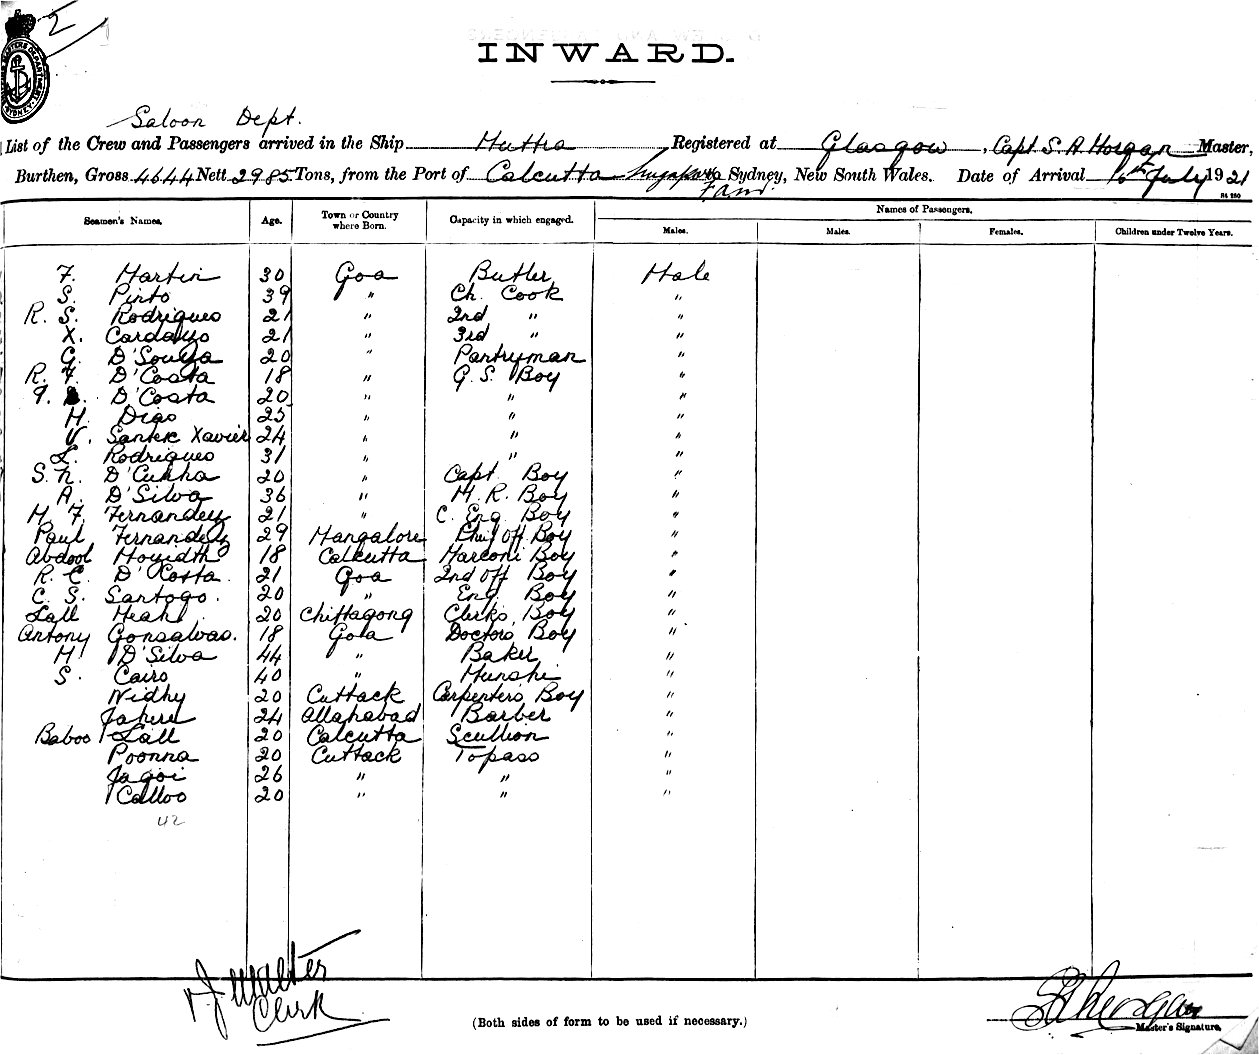 2
INWARD.
Saloon Dept.
List of the Crew and Passengers arrived in the Ship Muttra Registered at Glasgow, Capt S. A. Morgan Master,
Burthen, Gross 4644 Nett 2985 Tons, from the Port of Calcutta Singapore to Sydney, New South Wales. Date of Arrival 10th July 1921
Seamen's Names. Age. Town or Country where Born. Capacity in which engaged. Names of Passengers.
Males. Males. Females. Children under Twelve Years.
F. Martin 30 Goa Butler Male
S. Pinto 39 " Ch. Cook "
R. S. Rodrigues 21 " 2nd " "
X. Cardozo 21 " 3rd " "
G. D'Souza 20 " Pantryman "
R. F. D'Costa 18 " G. S. Boy "
D'Costa 20 " " "
M. Dias 25 " " "
V. Xavier 24 " " "
L. Rodrigues 31 " " "
S. N. D'Cunha 20 " Capt. Boy "
A. D'Silva 36 " M. R. Boy "
M. F. Fernandez 21 " C. Eng. Boy "
Paul Fernandez 29 Mangalore Chief Off Boy "
Abdool 18 Calcutta Marconi Boy "
R. C. D'Costa. 21 Goa 2nd Off Boy "
C. S. Santogo. 20 " Eng. Boy "
Lall Meah 20 Chittagong Clerks, Boy "
Antony Gonsalvas. 18 Goa Doctors Boy "
M. D'Silva 44 " Baker "
S. Cairo 40 " Munshi "
Nidhy 20 Cuttack Carpenters Boy "
24 Allahabad Barber "
Baboo Lall 20 Calcutta Scullion "
Poonna 20 Cuttack Topass "
Jagoi 26 " " "
Calloo 20 " " "
42
Walter
Clerk
(Both sides of form to be used if necessary.)
S A Morgan
Master's Signature.